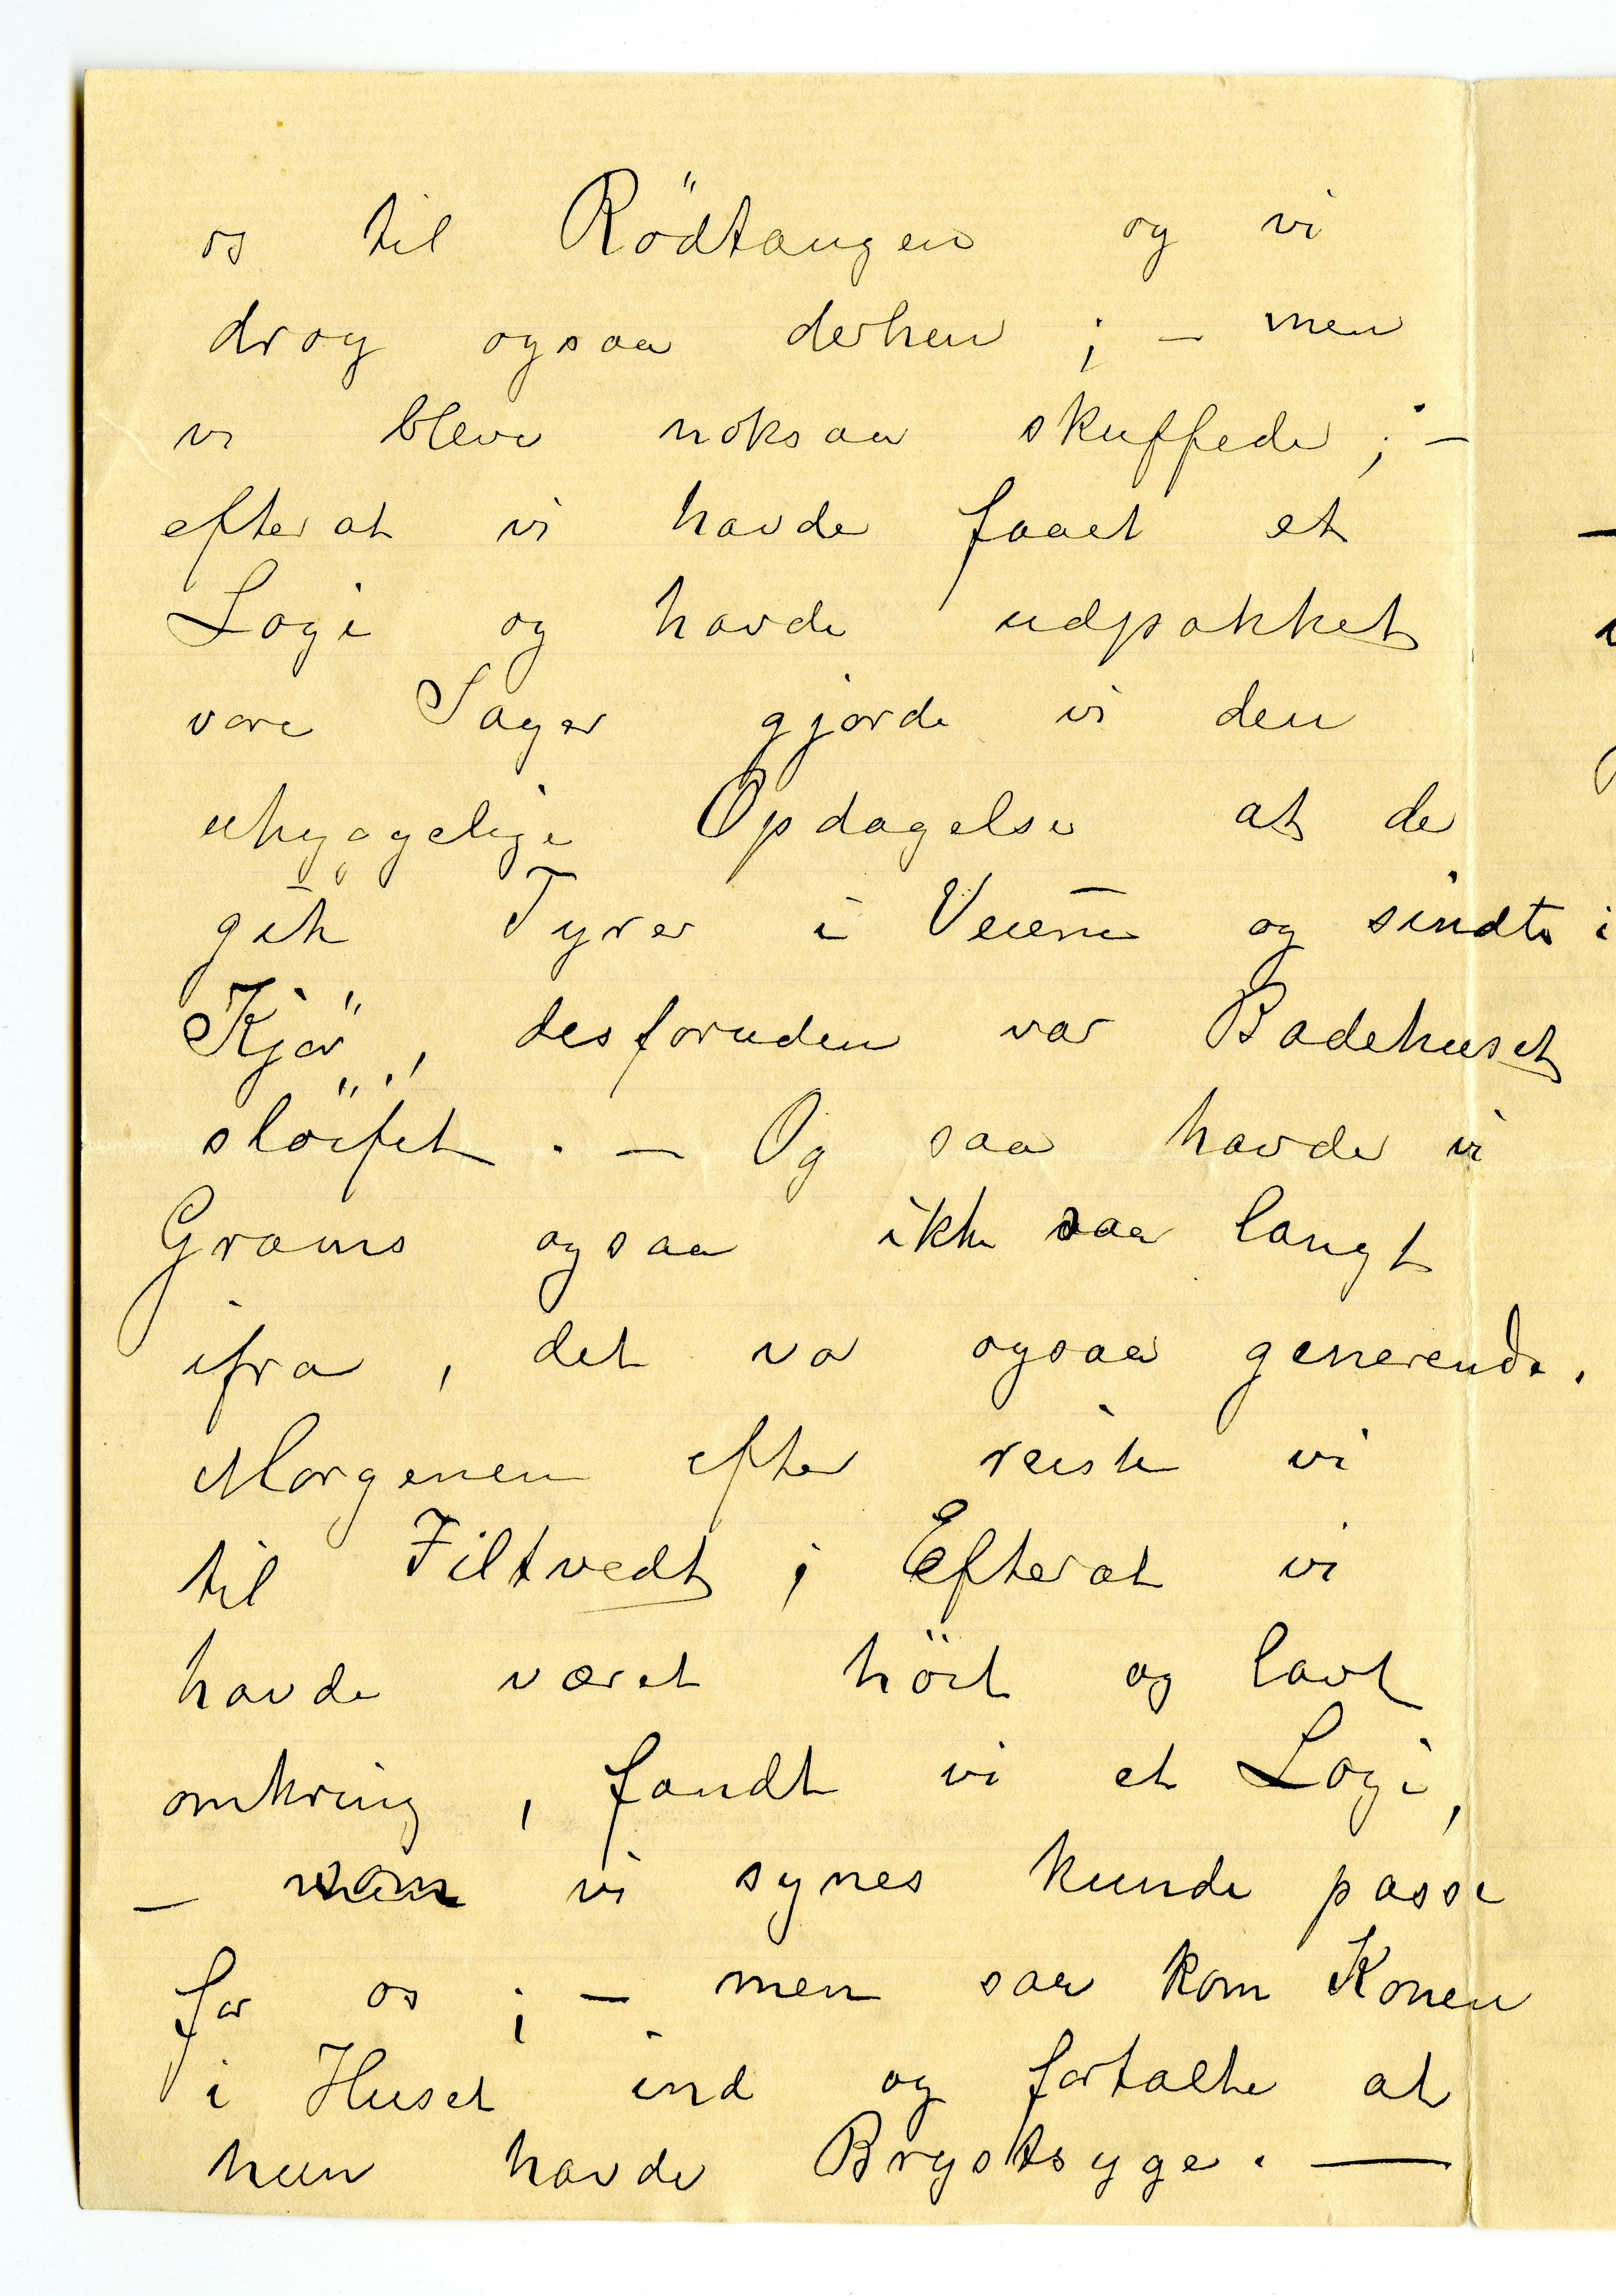 os til Rödtangen og vi
drog ogsaa derhen ; – men
vi bleve noksaa skuffede ; –
efter at vi havde faaet et
Logi og havde udpakket
vore Sager gjorde vi den
uhyggelige Opdagelse at de
gik Tyrer i Veiene og sindte i
Kjör, desforuden var Badehuset
slöifet. – Og saa havde vi
Grams ogsaa ikke saa langt
ifra, det va ogsaa generende.
Morgenen efter reiste vi
til Filtvedt ; Efter at vi
havde været höit og lavt
omkring, fandt vi et Logi,
– som vi synes kunde passe
for os ; – men saa kom Konen
i Huset ind og fortalte at
hun havde Brystsyge. —